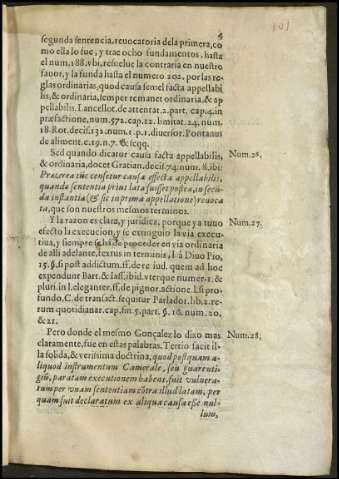 101
4
segunda sentencia, reuocatoria dela primera, co
mo esta lo fue, y trae ocho fundamentos, hasta
el num. 188. vbi, resuelue la contraria en nuestro
fauor, y la funda hasta el numero 202. por las re-
glas ordinarias, quod causa semel facta appellabi
lis, & ordinaria, semper remanet ordinaria, & ap
pellabilis. Lancellot. de attentat. 2. part. cap. 4. in
præfactione, num. 572. cap. 12. limitat. 24. num.
18. Rot. decis. 132. num. 1. p. 1. diuersor. Pontanus
de aliment. c. 19. n. 7. & seqq.
Sed quando dicatur causa facta appellabilis,
& ordinaria, docet Gratian. decis. 74. num. 8. ibi:
Præterea tũc censetur causa effecta appellabilis,
quando sententia prius lata fuisset postea, in secũ
da instantia (& sic in prima appellatione) reuoca
ta, que son nuestros mesmos terminos.
Y la razon es clara, y juridica, porque ya tuuo
efecto la execucion, y se extinguio la via execu
tiua, y siempre se ha de proceder en via ordinaria
de alli adelante, textus in terminis, l. à Diuo Pio,
15. §. si post addictum. ff. de re iud. quem ad hoc
expendunt Bart. & Iass. ibid. vterque numer. 1. &
pluri. in l. eleganter. ff. de pignor. actione. l. si pro-
fundo, C. de transact. sequitur Parlador. lib. 2. re
rum quotidianar. cap. fin. 5. part. §. 16. num. 20.
& 21.
Pero donde el mesmo Gonçalez lo dixo mas
claramente, fue en estas palabras. Tertio facit il-
la solida, & verissima doctrina, quod postquam a-
liquod instrumentum Camerale, seu guarenti-
giũ, paratam executionem habens, fuit vulnera-
tum per vnam sententiam cõtra illud latam, per
quam fuit declaratum ex aliqua causa esse nul-
lum,
Num. 26.
Num. 27.
Num. 28.